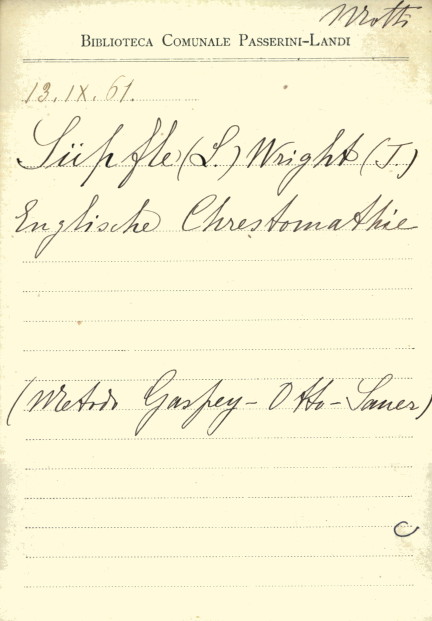 BIBLIOTECA COMUNALE PASSERINI-LANDI
13.IX.61.
Süpfle (L.) Wright (J.)
Englische Chrestomathie
(Metodo Gaspey-Otto-Sauer)
C